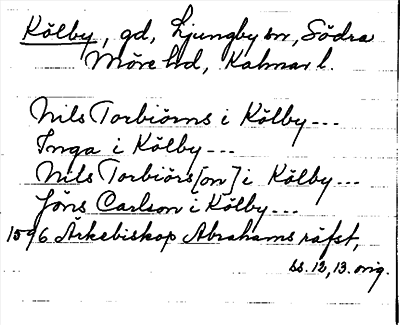 Kölby, gd, Ljungby sn, Södra
Möre hd, Kalmar l.
Nils Torbiörns i Kölby---
Inga i Kölby---
Nils Torbiörs[on] i Kölby---
Jöns Carlson i Kölby---
1596 Ärkebiskop Abrahams räfst,
ss. 12, 13. orig.